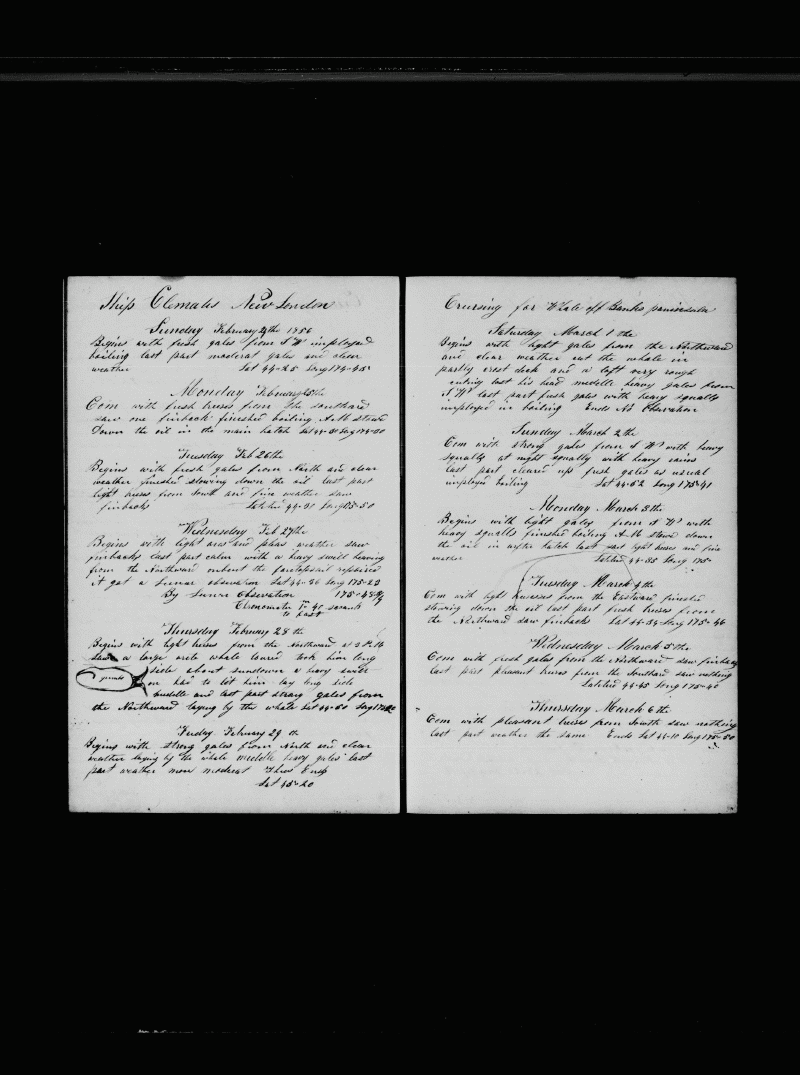 Ship Clematis New London
Sunday February 24th 1856
Begins with fresh gales from S W imployed
boiling last part moderat gales and clear
weather Lat 44-25 Long 174-45
Monday February 25th
Com with fresh breses from the southard
saw one finback finished boiling A.M. stowed
down the oil in the main hatch Lat 44-30 Long 174-20
Tuesday Feb 26th
Begins with fresh gales from North and clear
weather finished stowing down the oil last part
light breses from South and fine weather saw
finbacks Latitud 44-31 Long 175-50
Wednesday Feb 27th
Begins with light ares and pleas weather saw
finbacks last part calm with a heavy swell heaving
from the Northward onbent the foretopsail repaired
it got a Lunar observation Lat 44-56 Long 175-23
By Lunar Observation 175-48
Chronometer 1m 40 seconds
to fast
Thursday February 28th
Begins with light breses from the Northward at 3 P.M.
saw a large rite whale lowered took him long
side about sundown a heavy swell
on had to let him lay long side
meddle and last part strong gales from
the Northward laying by the whale Lat 44-50 Long
Friday February 29th
Begins with strong gales from North and clear
weather laying by the whale meddle heavy gales last
part weather more moderat Thus Ends
Lat 45-20
Cruising for Whale off Banks paninsula
Saturday March 1 the
Begins with light gales from the Northward
and clear weather cut the whale in
partly crost dick and a loft very rough
cuting lost his head meddle heavy gales from
S W last part fresh gales with heavy squalls
imployed in boiling Ends No Obervation
Sunday March 2 the
Com with strong gales from S W with heavy
squalls at night squally with heavy rains
last part cleared up fresh gales as usual
imployed boiling Lat 44-52 Long 175-41
Monday March 3 the
Begins with light gales from S W with
heavy squalls finished boiling A.M. stowed down
the oil in after hatch last part light breses and fine
weather Latitud 44-35 Long 175-
Tuesday March 4 the
Com with light breeses from the Eastward finished
stowing down the oil last part fresh breses from
the Northward saw finbacks Lat 44-54 Long 175-46
Wednesday March 5 the
Com with fresh gales from the Northward saw finbacks
last part pleasant breses from the Southard saw nothing
Latitud 44-45 Long 175-40
Thursday March 6 the
Com with pleasant breses from South saw nothing
last part weather the same Ends Lat 44-10 Long 175-50